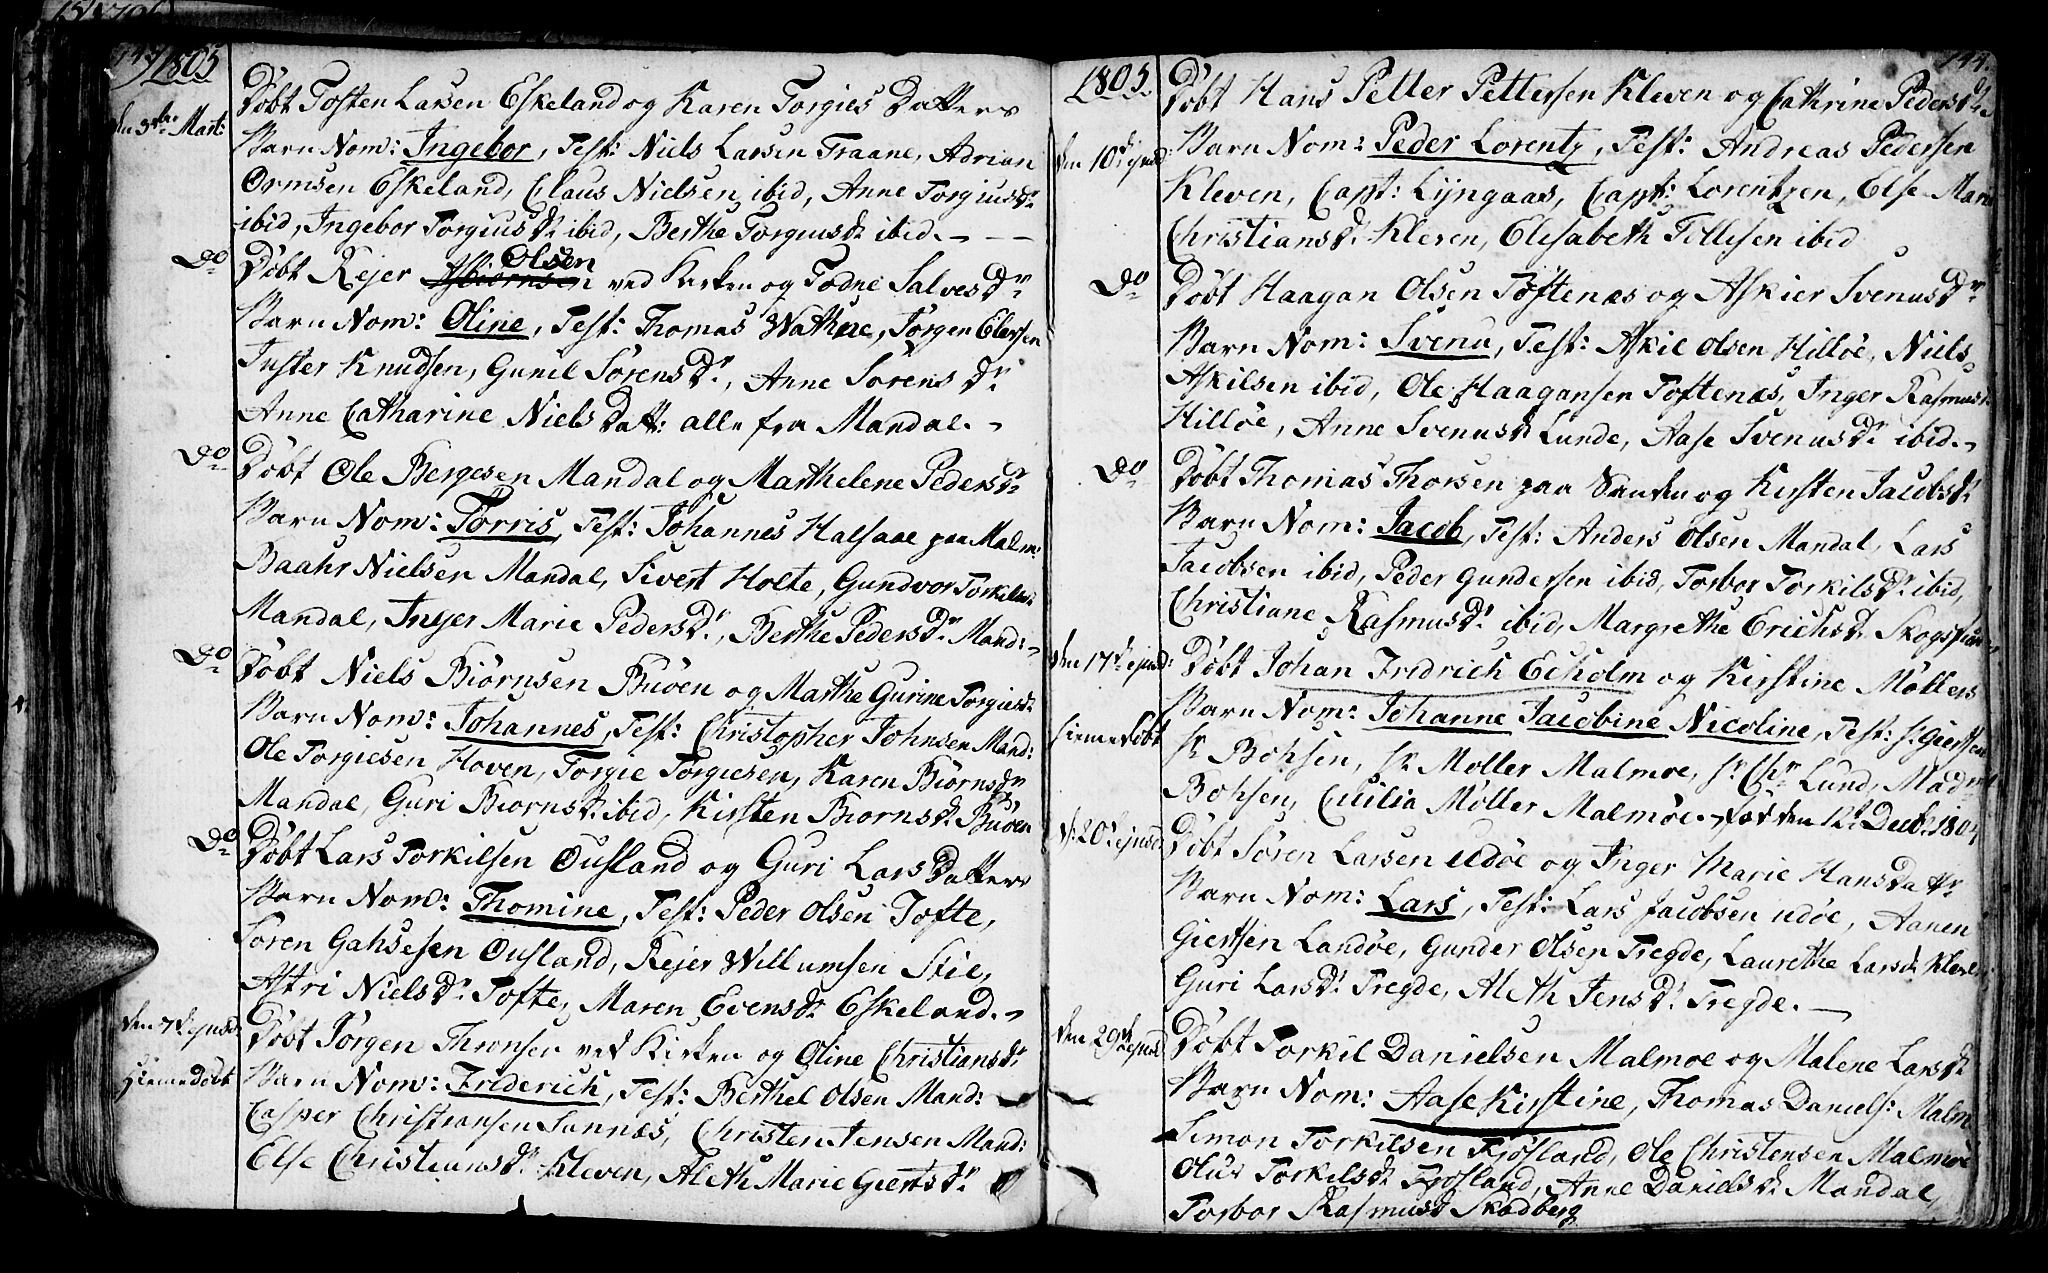 1805
den 3die Mart:
Døbt Tosten Larsen Eskeland og Karen Torgies Datters
Barn Nom: Ingebor, Test: Niels Larsen Traane, Adrian
Ormsen Eskeland, Claus Nielsen ibid, Anne Torgiusdr
ibid, Ingebor Torgiusdr ibid, Berthe Torgiusdr ibid. -
Do
Døbt Rejer Asbiørnsen Olsen ved Kirken og Todne Salvesdr
Barn Nom: Oline, Test: Thomas Wathne, Jørgen Elertsen
Juster Knudsen, Gunil Sørensdr, Anne Sørens dr
Anne Catharine Niels Datt: alle fra Mandal. -
Do
Døbt Ole Bergesen Mandal og Marthelene Pedersdr
Barn Nom: Torris, Test: Johannes Halsaae paa Malm:
Baahr Nielsen Mandal, Sivert Holte, Gundvor Torkilsdr
Mandal, Inger Marie Pedersdr, Berthe Pedersdr Mand: -
Do
Døbt Niels Biörnsen Buøen og Marthe Gurine Torgiesdr
Barn Nom: Johannes, Test: Christopher Johnsen Mand:
Ole Torgiesen Hoven, Torgie Torgiesen, Karen Biørnsdr
Mandal, Guri Biornsdr ibid, Kirsten Biornsdr Buöen
Do
Døbt Lars Torkilsen Ousland og Guri Lars Datters
Barn Nom: Thomine, Test: Peder Olsen Tofte,
Sören Gahsesen Ousland, Rejer Willumsen Stie,
Astri Nielsdr Tofte, Maren Evensdr Eskeland. -
den 7de ejusd:
Døbt Jørgen Thronsen ved Kirken og Oline Christiansdr
Hiemedøbt
Barn Nom: Friderich, Test: Berthel Olsen Mand:
Casper Christiansen Sannæs, Christen Jensen Mand:
Else Christiansdr Kleven, Aleth Marie Giertsdr
1805. 144.
Døbt Hans Petter Pettersen Kleven og Cathrine Pedersdr
den 10de ejusd:
Barn Nom: Peder Lorentz, Test: Andreas Pedersen
Kleven, Capt: Lijngaas, Capt: Lorentzen, Else Marie
Christiansdr Kleven, Elisabeth Tellesen ibid
Do
Døbt Haagan Olsen Toftenæs og Askier Svenusdr
Barn Nom: Svenu, Test: Askil Olsen Hilløe, Niels
Askilsen ibid, Ole Haagansen Toftenæs, Inger Rasmusdr
Hilløe, Anne Svenusdr Lunde, Aase Svenusdr ibid. -
Do
Døbt Thomas Thorsen paa Sanden og Kirsten Jacobsdr
Barn Nom: Jacob, Test: Anders Olsen Mandal, Lars
Jacobsen ibid, Peder Gundersen ibid, Torbor Torkilsdr ibid,
Christiane Rasmusdr ibid, Margrethe Erichsdr
den 17de ejusd:
Døbt Johan Fridrich Echolm og Kirstine Møllers
hiemedøbt
Barn Nom: Johanne Jacobine Nicoline, Test: Sr Giertsen
Sr Bohsen, Sr Møller Malmøe, Sr Chr Lund, Madme
Bohsen, Cicilia Møller Malmøe. - fød den 12te Decbr 1804
d: 20de ejusd:
Døbt Søren Larsen Udøe og Inger Marie Hans Dattr
Barn Nom: Lars, Test: Lars Jacobsen Udøe, Aanen
Giertsen Landøe, Gunder Olsen Tregde, Laurethe Larsdr Kleven
Guri Larsdr Tregde, Aleth Jensdr Tregde. -
den 29de ejusd
Døbt Torkil Danielsen Malmøe og Malene Larsdr
Barn Nom: Aase Kirstine, Thomas Daniels: Malm
Simon Torkilsen Frøsland, Ole Christensen Malmøe
Olu Torkilsdr Frøsland, Anne Danielsdr Mandal,
Torbor Rasmusdr Skadberg